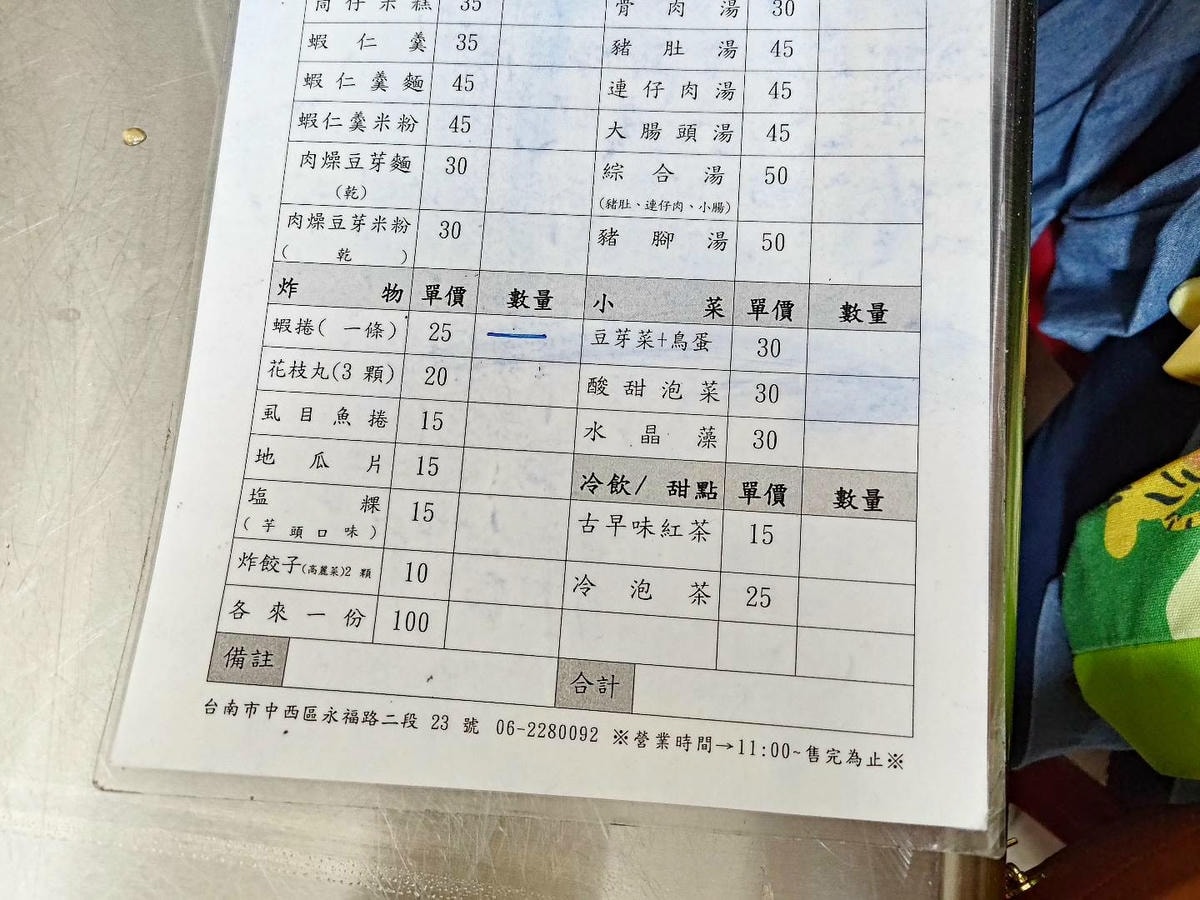 筒仔米糕 35
蝦仁羹 35
蝦仁羹麵 45
蝦仁羹米粉 45
肉燥豆芽麵 30
(乾)
肉燥豆芽米粉 30
(乾)
骨肉湯 30
豬肚湯 45
連仔肉湯 45
大腸頭湯 45
綜合湯 50
(豬肚、連仔肉、小腸)
豬腳湯 50
炸物 單價 數量
蝦捲(一條) 25 一
花枝丸(3 顆) 20
虱目魚捲 15
地瓜片 15
塩粿 15
(芋頭口味)
炸餃子(高麗菜)2 顆 10
各來一份 100
小菜 單價 數量
豆芽菜+鳥蛋 30
酸甜泡菜 30
水晶藻 30
冷飲/ 甜點 單價 數量
古早味紅茶 15
冷泡茶 25
備註
合計
台南市中西區永福路二段 23 號 06-2280092 ※營業時間→11:00~售完為止※